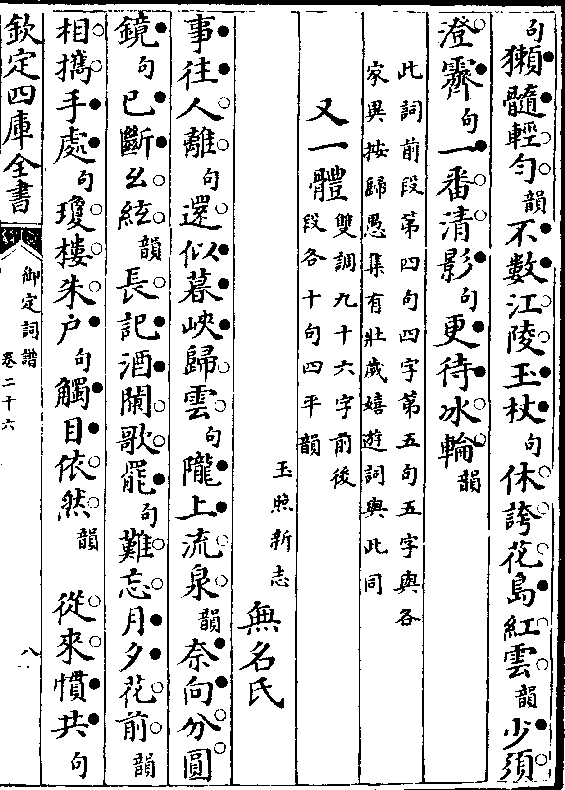 句獺髓輕勻韻不數江陵玉杖句休誇花島紅雲韻少須
澄霽句一番清影句更待冰輪韻
此詞前段第四句四字第五句五字與各
家異按歸愚集有壯歲嬉遊詞與此同
又一體雙調九十六字前後
段各十句四平韻
玉照新志無名氏
事往人離句還似暮峽歸雲句隴上流泉韻奈向分圓
鏡句已斷么絃韻長記酒闌歌罷句難忘月夕花前韻
相攜手處句瓊樓朱户句觸目依然韻　從來慣共句
欽定四庫全書
御定詞譜
卷二十六
八